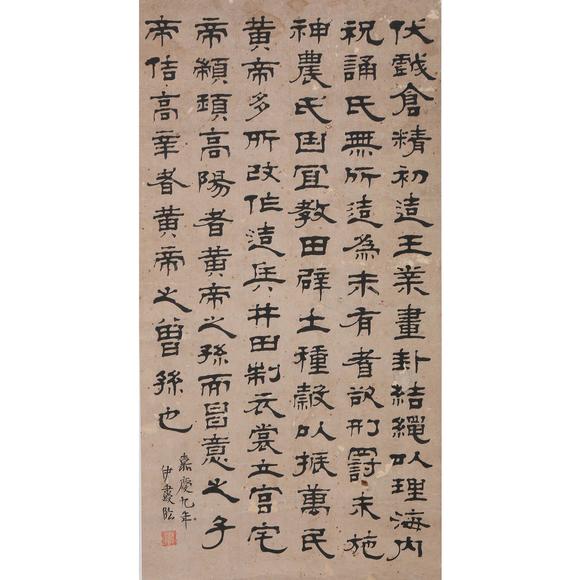 伏戲倉精初造王業畫卦結繩以理海內
祝誦氏無所造為未有耆欲刑罰未施
神農氏因宜教田辟土種穀以振萬民
黃帝多所改作造兵井田制衣裳立宮宅
帝顓頊高陽者黃帝之孫而昌意之子
帝佶高辛者黃帝之曾孫也
嘉慶九年
伊秉